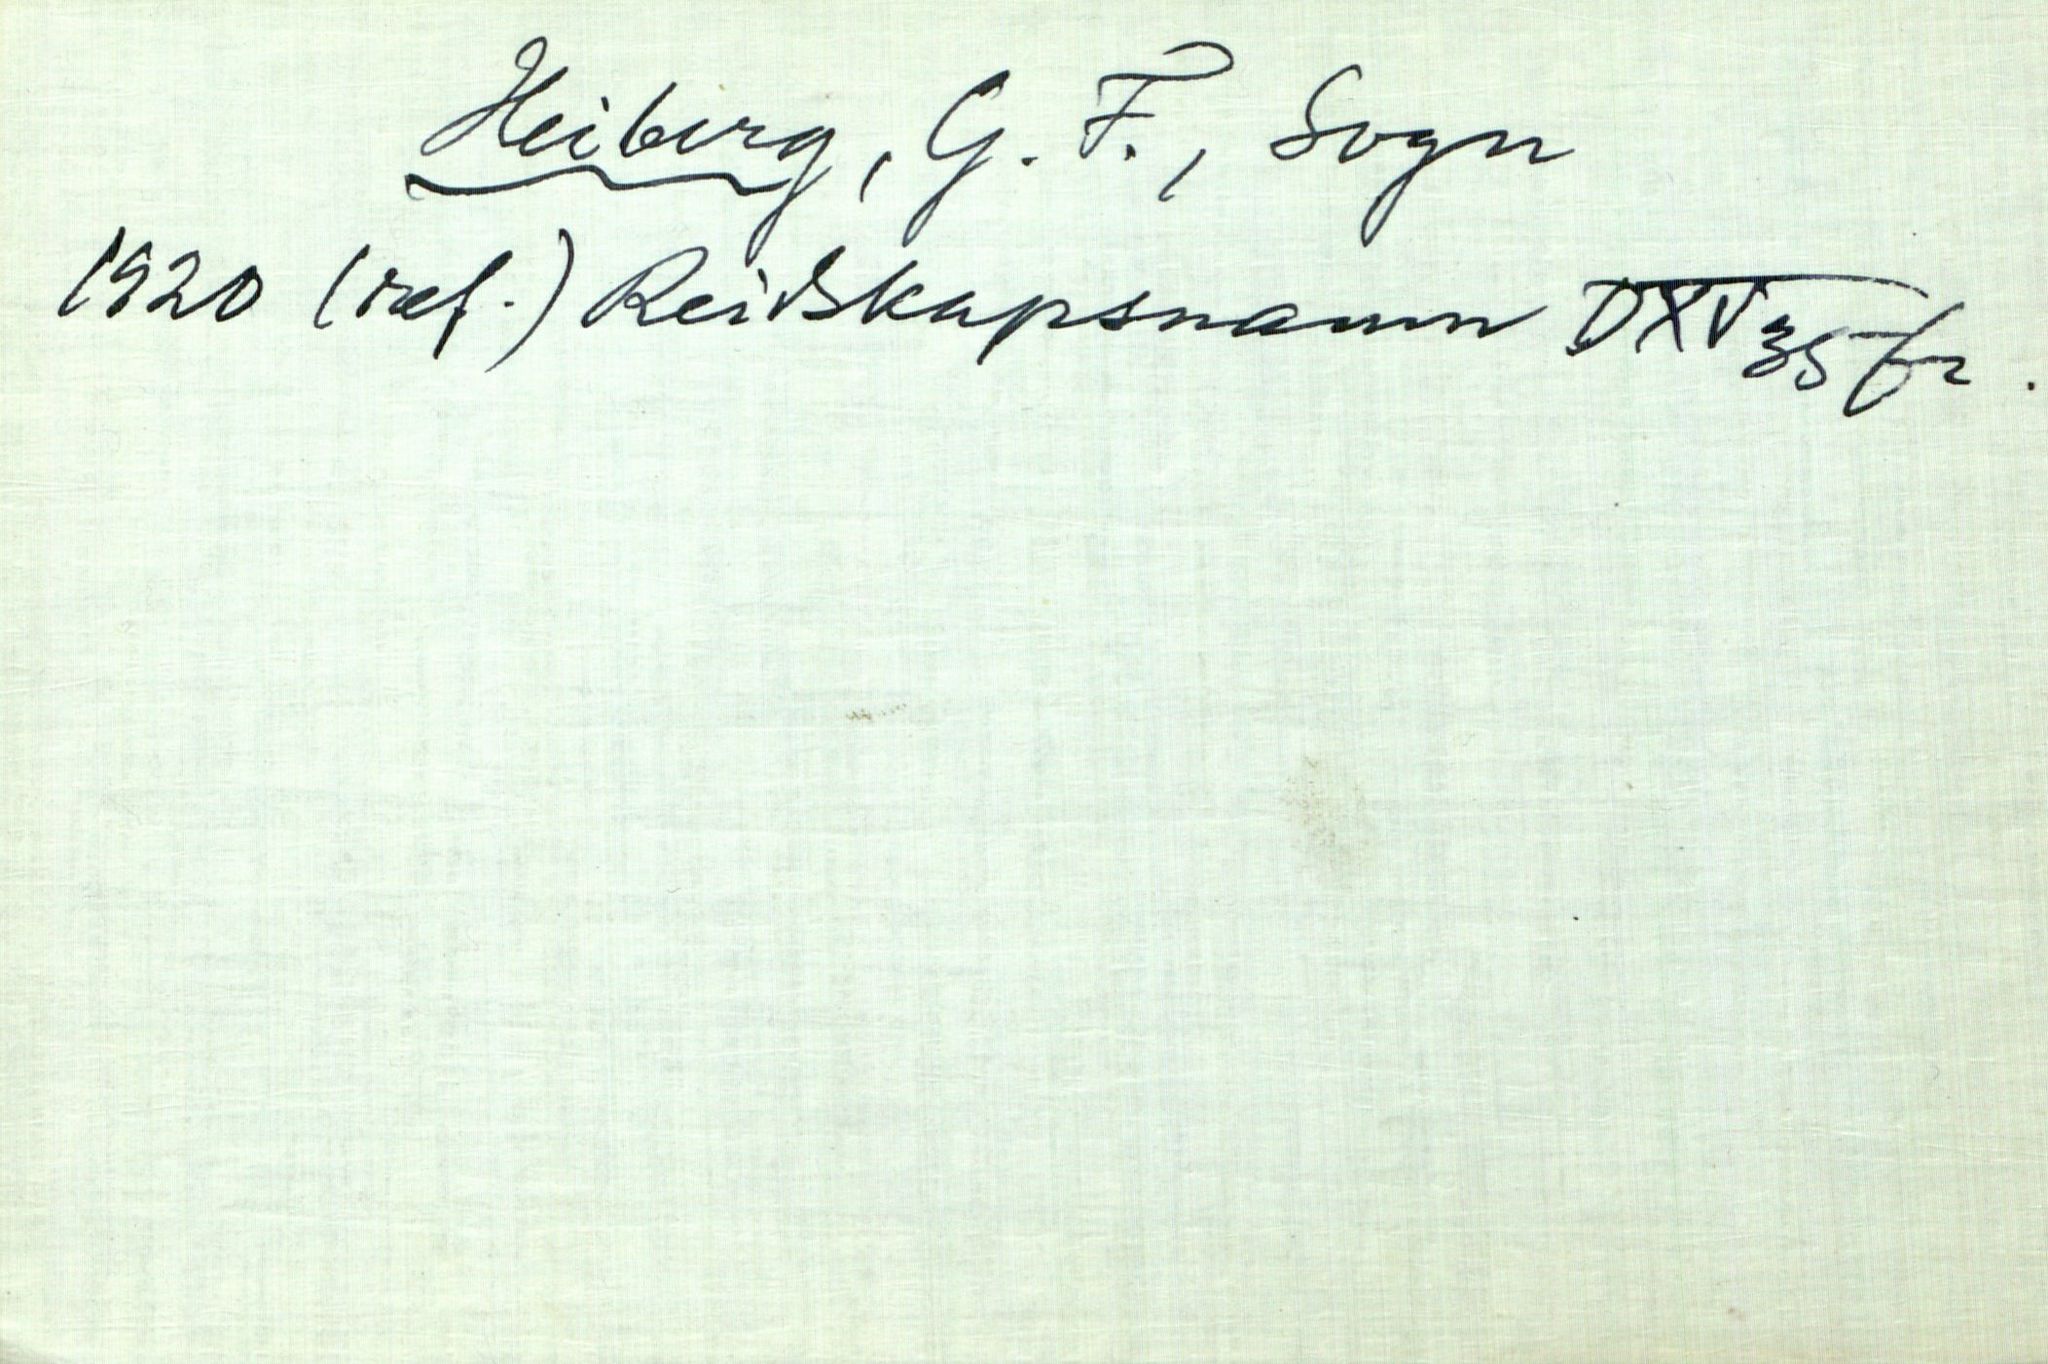 Heiberg, G. F., Sogn
1920 (ref.) Reidskapsnamn DXV 35 fr.